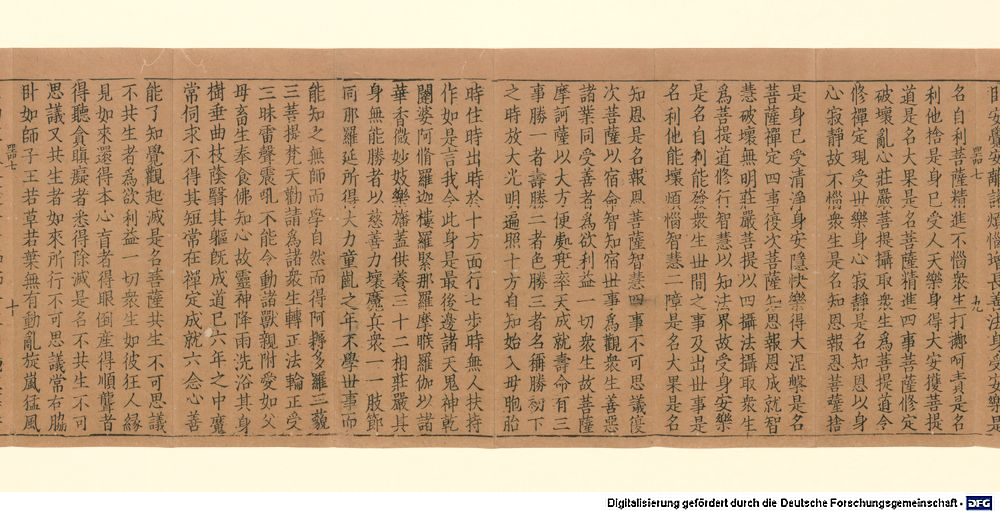 安覺安離諸煩惱增長善法安樂是
四品七 九
名自利菩薩精進不惱衆生打搏呵責是名
利他捨是身已受人天樂身得大安獲菩提
道是名大果是名菩薩精進四事菩薩修定
破壞亂心莊嚴菩提攝取衆生爲菩提道令
修禪定現受世樂身心寂靜是名知恩以身
心寂靜故不惱衆生是名知恩報恩菩薩捨
是身已受清淨身安隱快樂得大涅槃是名
菩薩禪定四事復次菩薩知恩報恩成就智
慧破壞無明莊嚴菩提以四攝法攝取衆生
爲菩提道修行智慧以知法界故受身安樂
是名自利能教衆生世間之事及出世事是
名利他能壞煩惱智慧二障是名大果是名
知恩是名報恩菩薩智慧四事不可思議復
次菩薩以宿命智知宿世事爲觀衆生善惡
諸業同受善者爲欲利益一切衆生故菩薩
摩訶薩以大方便處兜率天成就壽命有三
事勝一者壽勝二者色勝三者名稱勝初下
之時放大光明遍照十方自知始入母胞胎
時住時出時於十方面行七步時無人扶持
作如是言我今此身是最後邊諸天鬼神乾
闥婆阿脩羅迦樓羅緊那羅摩睺羅伽以諸
華香微妙妓樂幡蓋供養三十二相莊嚴其
身無能勝者以慈善力壞魔兵衆一一肢節
同那羅延所得大力童齔之年不學世事而
能知之無師而學自然而得阿耨多羅三藐
三菩提梵天勸請爲諸衆生轉正法輪正受
三昧雷聲震吼不能令動諸獸親附愛如父
母畜生奉食佛知心故靈神降雨洗浴其身
樹垂曲枝蔭翳其軀旣成道已六年之中魔
常伺求不得其短常在禪定成就六念心善
能了知覺觀起滅是名菩薩共生不可思議
不共生者爲欲利益一切衆生如彼狂人緣
見如來還得本心盲者得眼倒産得順聾者
得聽貪瞋癡者悉得除滅是名不共生不可
思議又共生者如來所行不可思議常右脇
臥如師子王若草若葉無有動亂旋嵐猛風
四品七 十
Digitalisierung gefördert durch die Deutsche Forschungsgemeinschaft - DFG